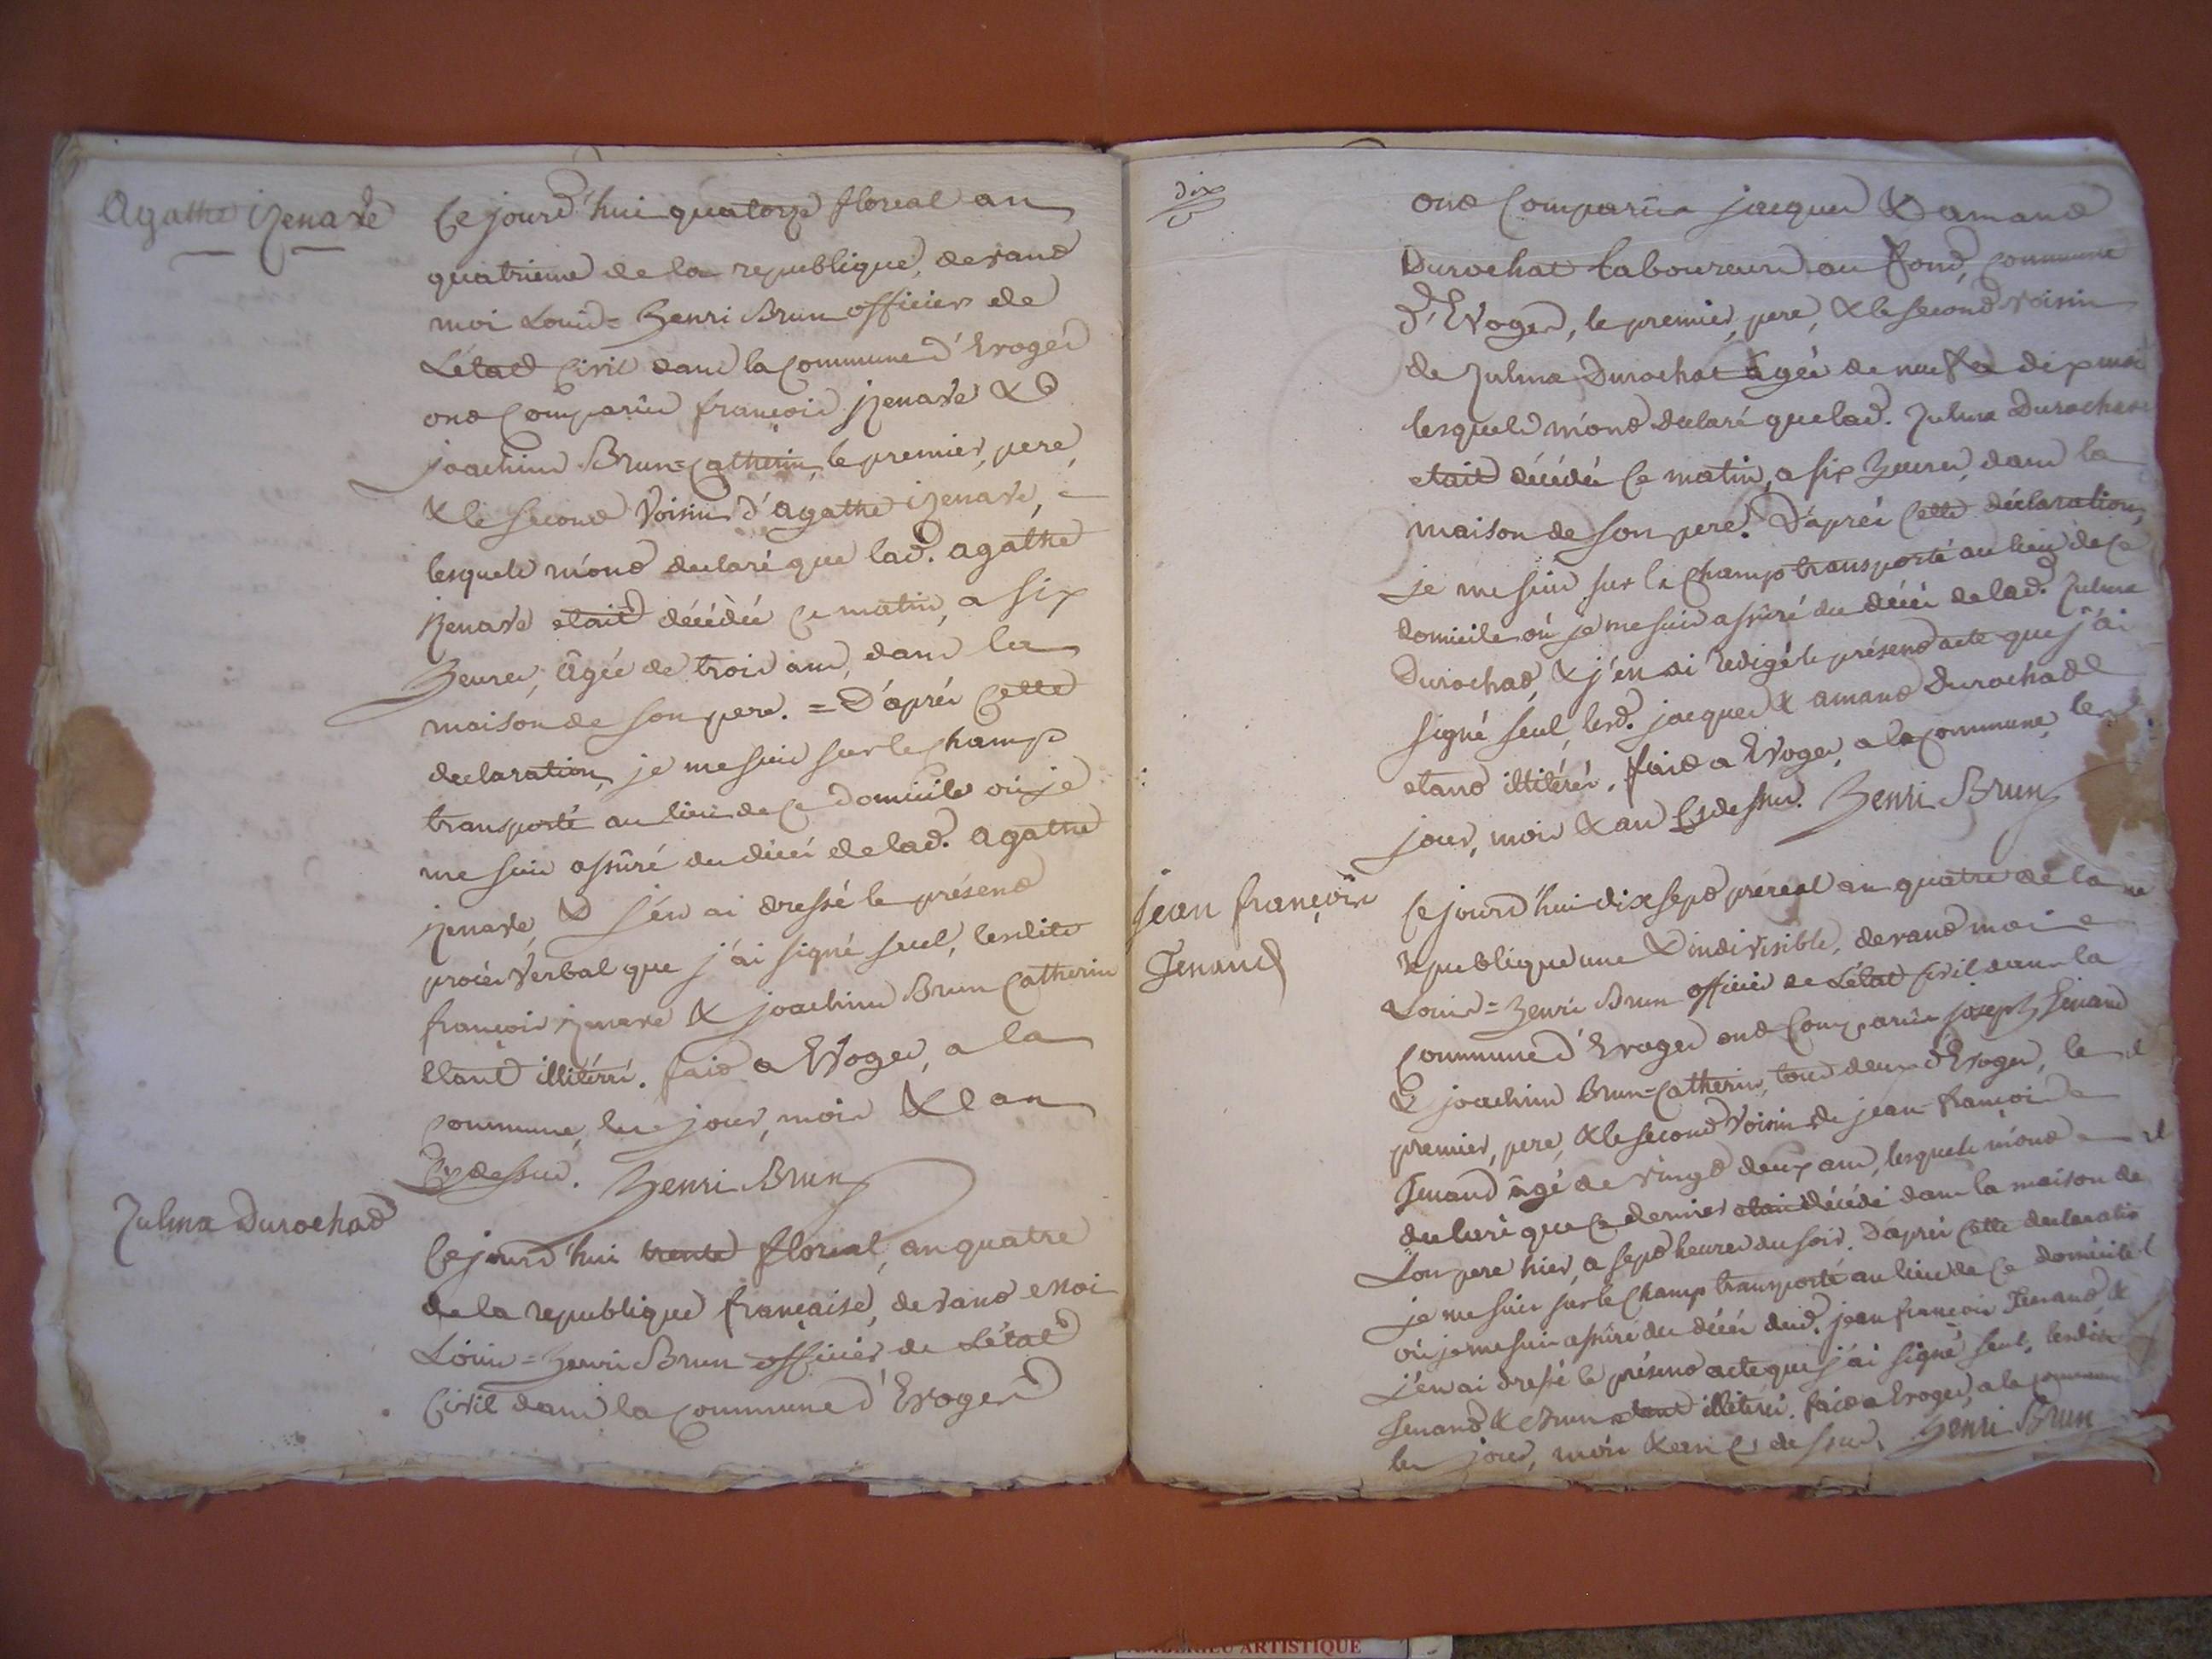 Agathe izenave
Ce jourd'hui quatorze floreal an
quatrieme de la republique, devant
moi Louis=henri Brun officier de
L'état Civil dans la Commune d'Evoges
ont Comparus françois izenave &
joachim Brun=Catherin, le premier, pere,
& le second voisin d'agathe izenave,
lesquels m'ont declaré que lad. agathe
izenave etait décédée Ce matin, a six
heures, âgée de trois ans, dans la
maison de son pere. = D'aprés Cette
declaration, je me suis sur le Champ
transporté au lieu de Ce domicile où je
me suis assûré du décés de lad. agathe
izenave, & j'en ai dressé le présent
procés verbal que j'ai signé seul, lesdits
françois izenave & joachim Brun Catherin
etant illitérés. fait a Evoges, a la
Commune, les jour, mois & an
Cy dessus. Henri Brun
Julma Durochat
Ce jourd'hui trente floreal, an quatre
de la republique française, devant moi
Louis=henri Brun officier de L'état
Civil dans la Commune d'Evoges
dix
ont Comparus jacques & amand
Durochat laboureurs au fond, Commune
d'Evoges, le premier, pere, & le second voisin
de Julma Durochat âgée de neuf a dix mois
lesquels m'ont declaré que lad. Julma Durochat
etait décédée Ce matin, a six heures, dans la
maison de son pere. D'aprés Cette déclaration,
je me suis sur le Champ transporté au lieu de Ce
domicile où je me suis assûré du décés de lad. Julma
Durochat, & j'en ai redigé le présent acte que j'ai
signé seul, lesd. jacques & amand Durochat
etant illitérés. fait a Evoges, a la Commune, les
jour, mois & an Cy dessus. Henri Brun
jean françois
Jenand
Ce jourd'hui dix sept préréal an quatre de la
republique une & indivisible, devant moi
Louis=henri Brun officier de L'état Civil dans la
Commune d'Evoges ont Comparus joseph Jenand
& joachim Brun=Catherin, tous deux d'Evoges, le
premier, pere, & le second voisin de jean françois
Jenand âgé de vingt deux ans, lesquels m'ont
declaré que Ce dernier etait décédé dans la maison de
son pere hier, a sept heures du soir. D'aprés Cette declaratio
je me suis sur le Champ transporté au lieu de Ce domicile
où je me suis assûré du décés dud. jean françois Jenand &
j'en ai dressé le présent acte que j'ai signé seul, lesdits
Jenand & Brun etant illitérés. fait a Evoges, a la Commune
les jour, mois & an Cy dessus. Henri Brun
ARTISTIQUE